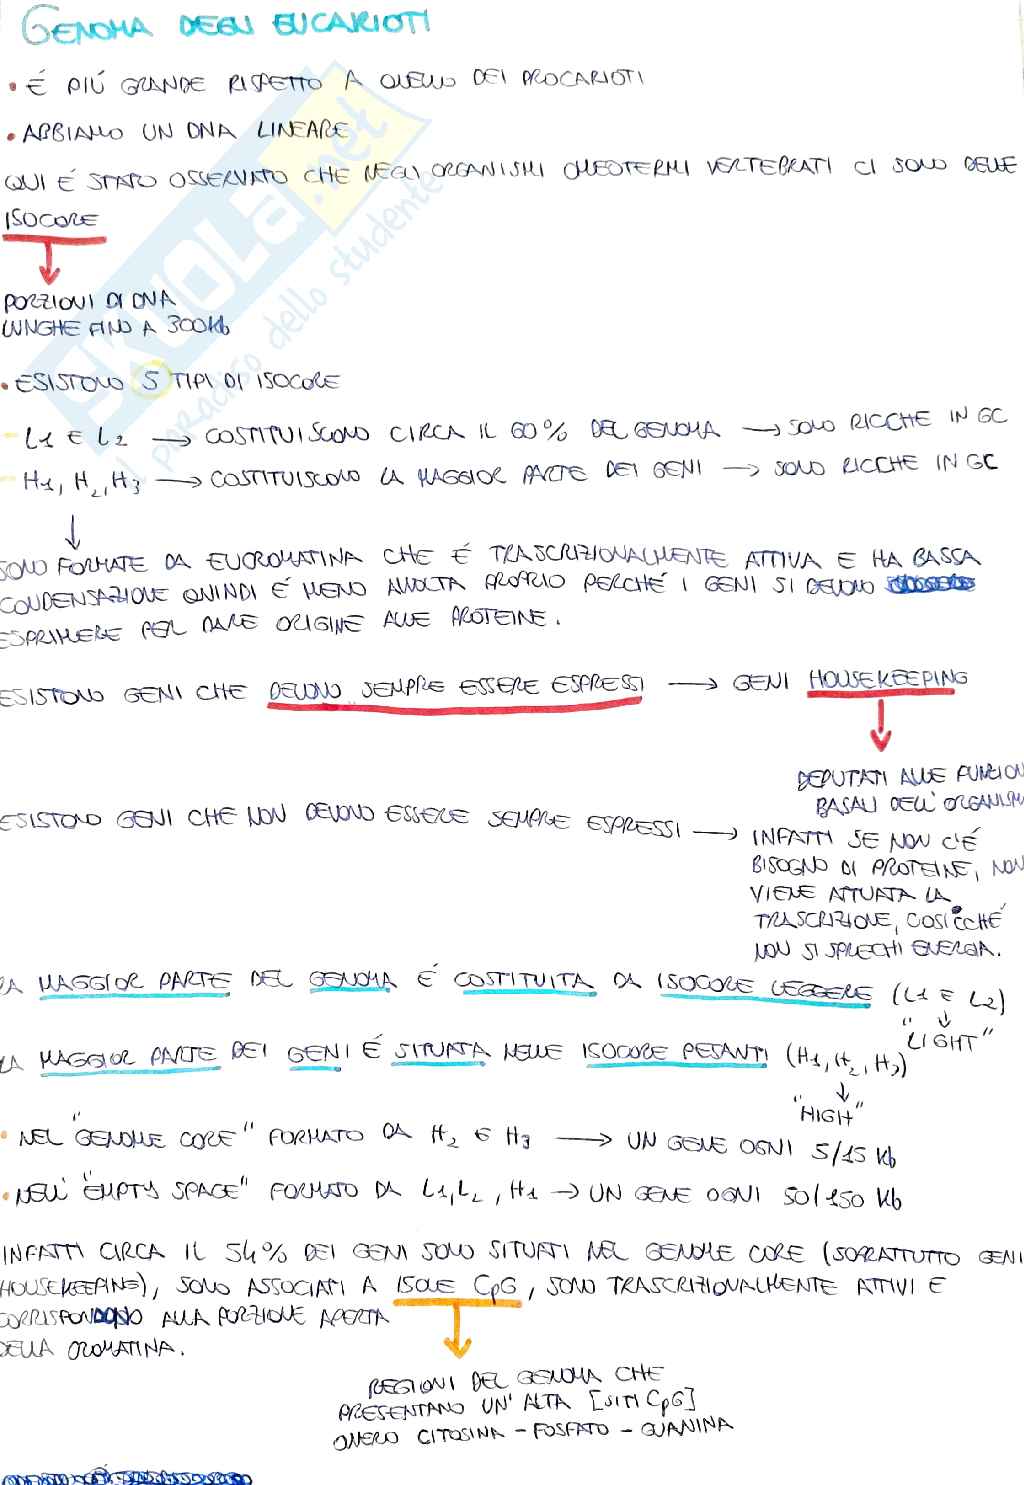 GENOMA DEGLI EUCARIOTI
• É PIÚ GRANDE RISPETTO A QUELLO DEI PROCARIOTI
• ABBIAMO UN DNA LINEARE
QUI É STATO OSSERVATO CHE NEGLI ORGANISMI OMEOTERMI VERTEBRATI CI SONO DELLE
ISOCORE
PORZIONI DI DNA
LUNGHE FINO A 300Kb
• ESISTONO 5 TIPI DI ISOCORE
- L1 E L2 → COSTITUISCONO CIRCA IL 60% DEL GENOMA → SONO RICCHE IN GC
- H1, H2, H3 → COSTITUISCONO LA MAGGIOR PARTE DEI GENI → SONO RICCHE IN GC
SONO FORMATE DA EUCROMATINA CHE É TRASCRIZIONALMENTE ATTIVA E HA BASSA
CONDENSAZIONE QUINDI É MENO AVVOLTA PROPRIO PERCHÉ I GENI SI DEVONO
ESPRIMERE PER DARE ORIGINE ALLE PROTEINE.
ESISTONO GENI CHE DEVONO SEMPRE ESSERE ESPRESSI → GENI HOUSEKEEPING
DEPUTATI ALLE FUNZION
BASALI DELL'ORGANISM
ESISTONO GENI CHE NON DEVONO ESSERE SEMPRE ESPRESSI → INFATTI SE NON C'É
BISOGNO DI PROTEINE, NON
VIENE ATTUATA LA
TRASCRIZIONE, COSICCHÉ
NON SI SPRECHI ENERGIA.
LA MAGGIOR PARTE DEL GENOMA É COSTITUITA DA ISOCORE LEGGERE (L1 E L2)
"LIGHT"
LA MAGGIOR PARTE DEI GENI É SITUATA NELLE ISOCORE PESANTI (H1, H2, H3)
"HIGH"
• NEL "GENOME CORE" FORMATO DA H2 E H3 → UN GENE OGNI 5/15 Kb
• NELL' "EMPTY SPACE" FORMATO DA L1, L2, H1 → UN GENE OGNI 50/150 Kb
INFATTI CIRCA IL 54% DEI GENI SONO SITUATI NEL GENOME CORE (SOPRATTUTTO GENI
HOUSEKEEPING), SONO ASSOCIATI A ISOLE CpG, SONO TRASCRIZIONALMENTE ATTIVI E
CORRISPONDONO ALLA PORZIONE APERTA
DELLA CROMATINA.
REGIONI DEL GENOMA CHE
PRESENTANO UN'ALTA [SITI CpG]
OVVERO CITOSINA - FOSFATO - GUANINA
SKUOLA.net
il paradiso dello studente